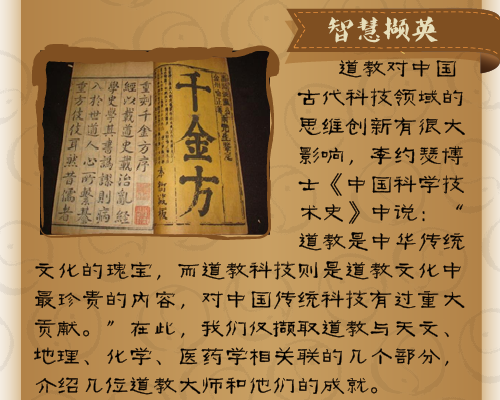 智慧撷英
道教对中国
古代科技领域的
思维创新有很大
影响，李约瑟博
士《中国科学技
术史》中说：“
道教是中华传统
文化的瑰宝，而道教科技则是道教文化中
最珍贵的内容，对中国传统科技有过重大
贡献。”在此，我们仅撷取道教与天文、
地理、化学、医药学相关联的几个部分，
介绍几位道教大师和他们的成就。
千金方
重刻千金方序
經以載道史載治亂經
學史學具書譌謬則病
入於世道人心而繫綦
重方伎